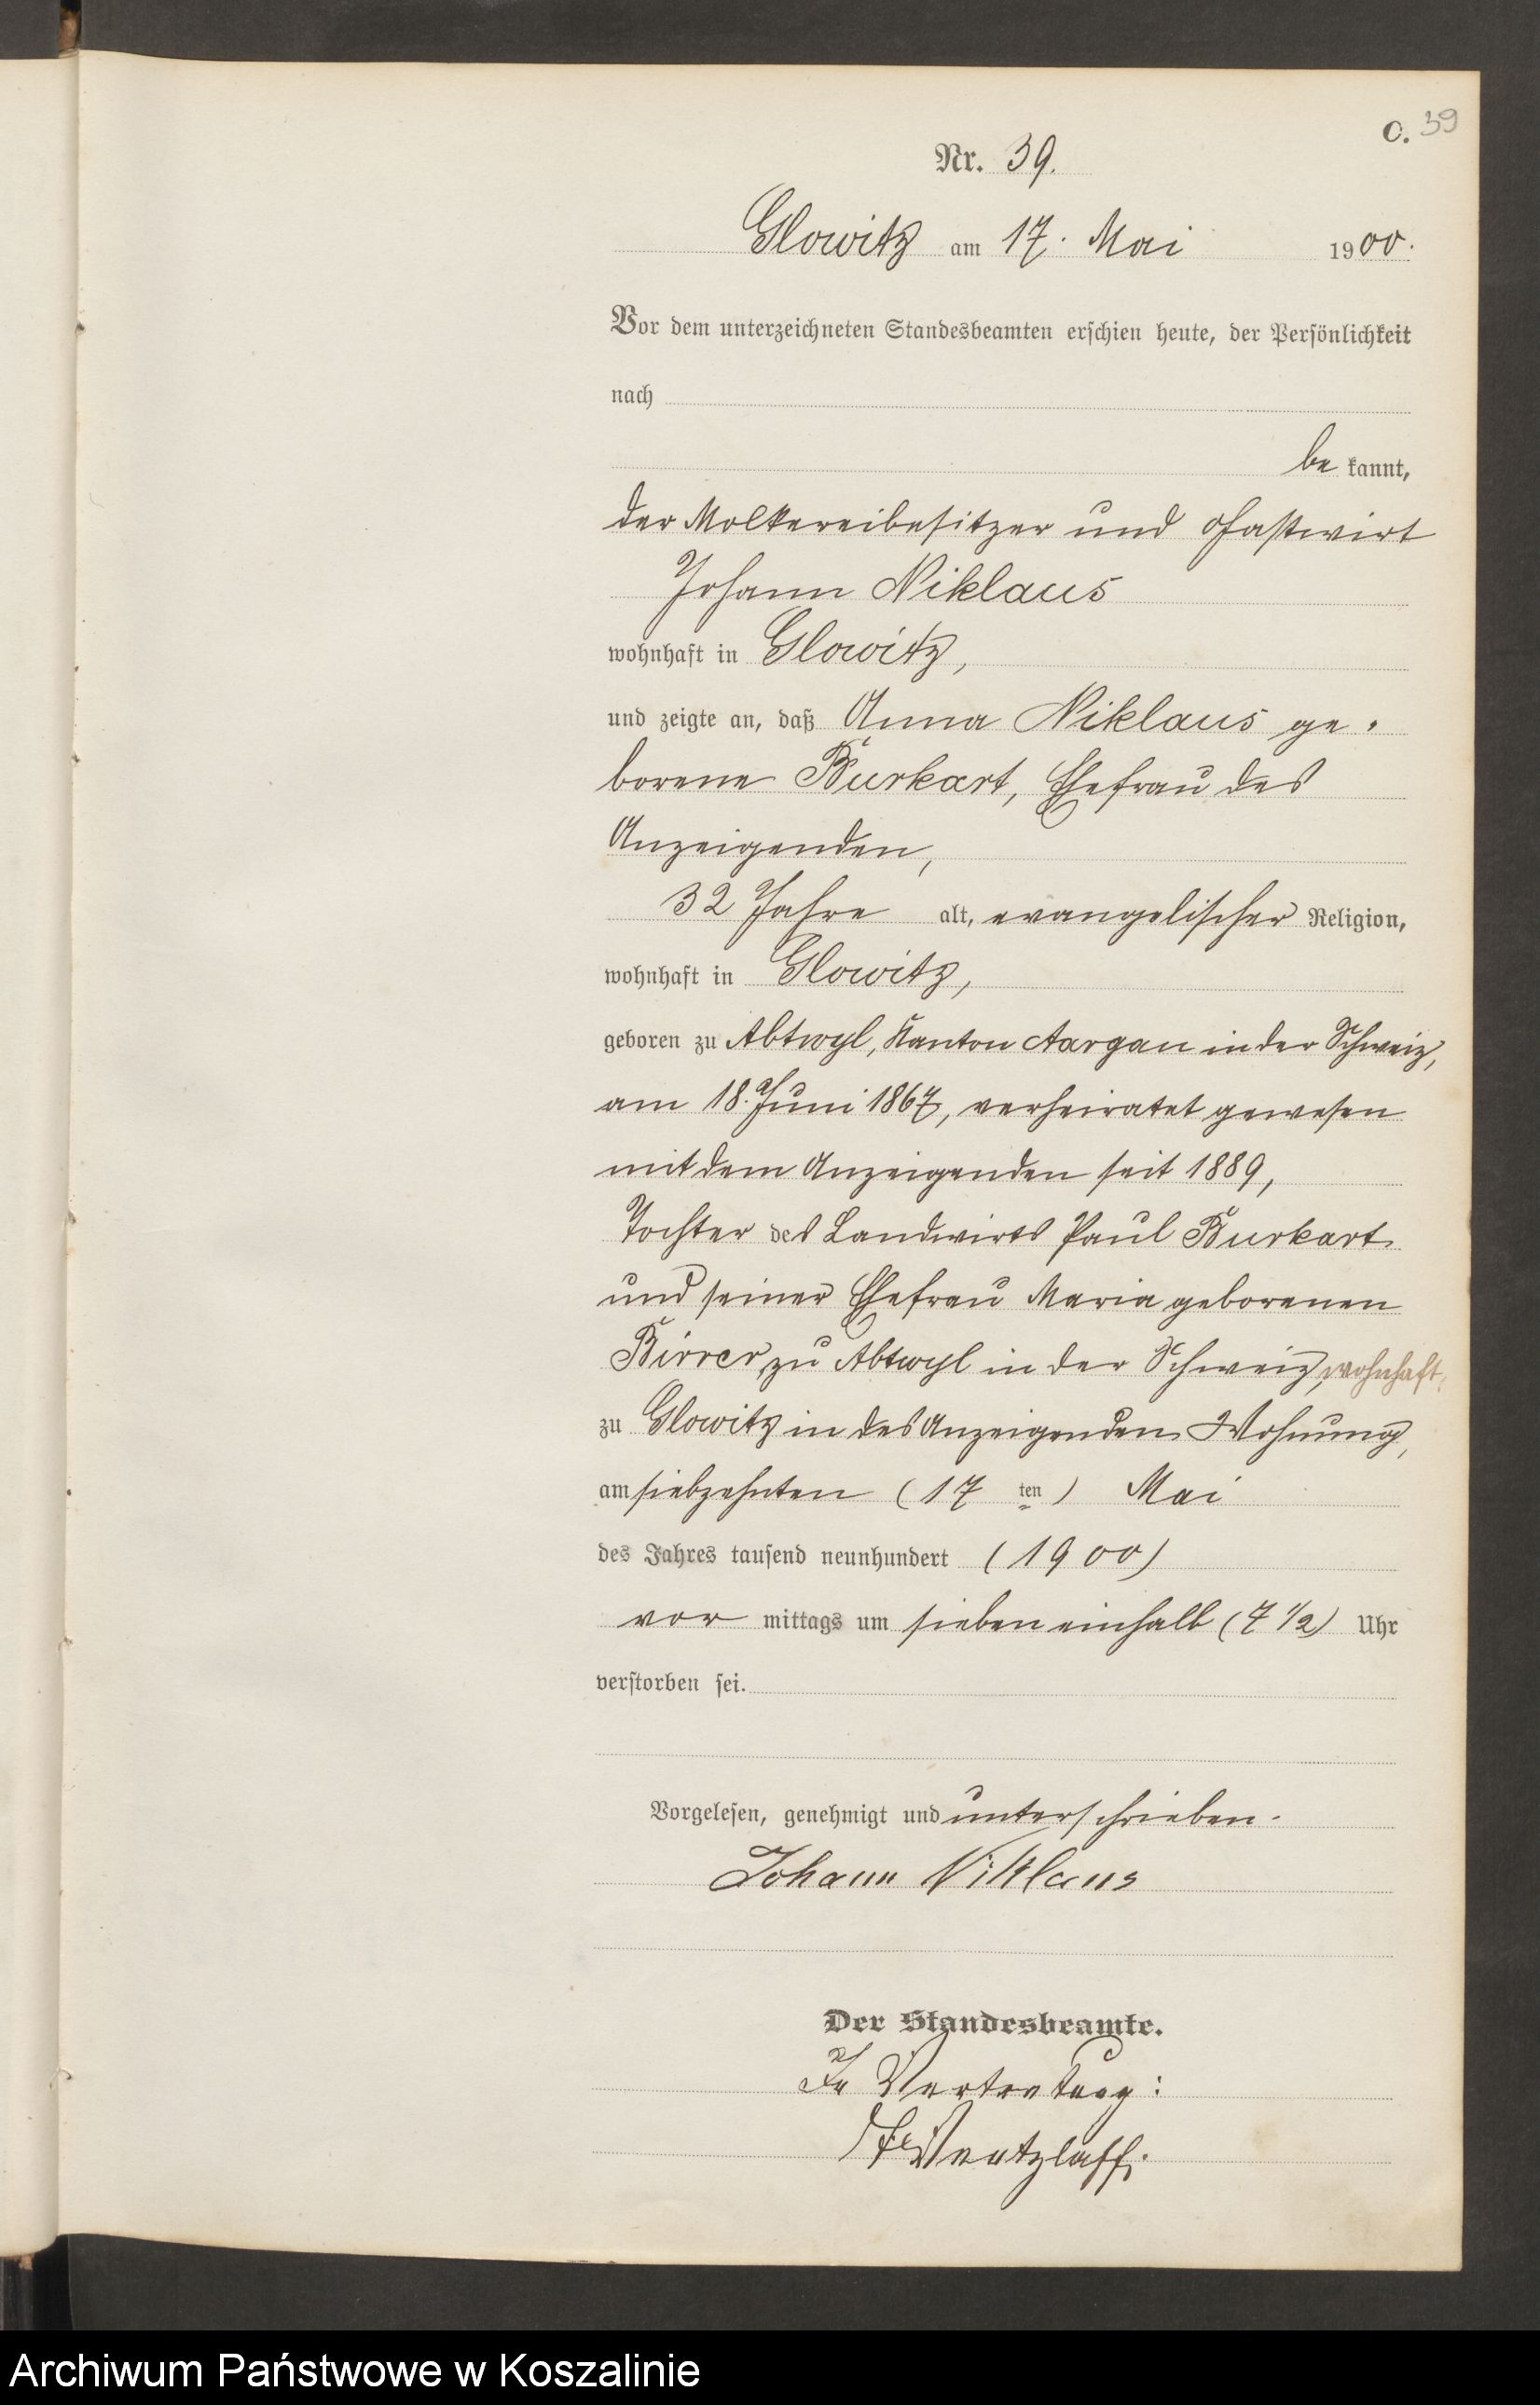 C. 39
Nr. 39.
Glowitz am 17. Mai 1900.
Vor dem unterzeichneten Standesbeamten erschien heute, der Persönlichkeit
nach
be kannt,
der Molkereibesitzer und Gastwirt
Johann Niklaus
wohnhaft in Glowitz,
und zeigte an, daß Anna Niklaus ge-
borene Burkart, Ehefrau des
Anzeigenden,
32 Jahre alt, evangelischer Religion,
wohnhaft in Glowitz,
geboren zu Abtwyl, Kanton Aargau in der Schweiz,
am 18. Juni 1867, verheiratet gewesen
mit dem Anzeigenden seit 1889,
Tochter des Landwirts Paul Burkart
und seiner Ehefrau Maria geborenen
Birrer, zu Abtwyl in der Schweiz, wohnhaft,
zu Glowitz in des Anzeigenden Wohnung,
am siebzehnten (17 ten) Mai
des Jahres tausend neunhundert (1900)
vor mittags um sieben einhalb (7 1/2) Uhr
verstorben sei.
Vorgelesen, genehmigt und unterschrieben.
Johann Niklaus
Der Standesbeamte.
In Vertretung:
Ventzlaff.
Archiwum Państwowe w Koszalinie